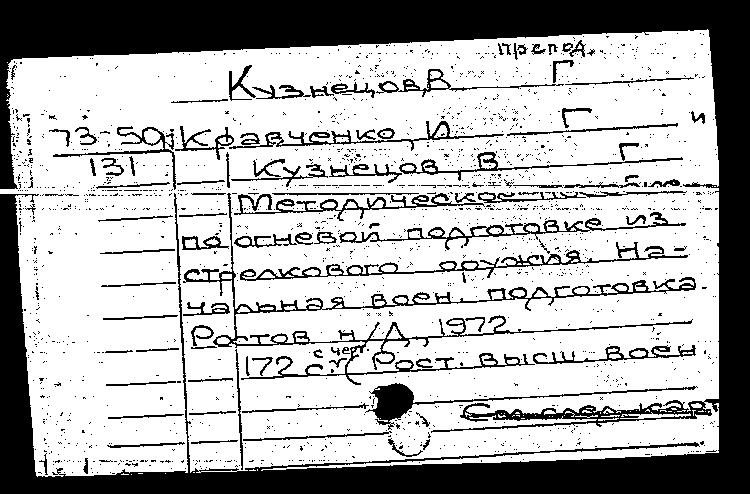 препод.
Кузнецов, В Г
73-50 Кравченко, И Г и
131 Кузнецов, В Г
Методическое
по огневой подготовке из
стрелкового оружия. На-
чальная воен. подготовка.
Ростов н/Д, 1972.
172 с. с черт. (Рост. высш. воен.
См. след. карт